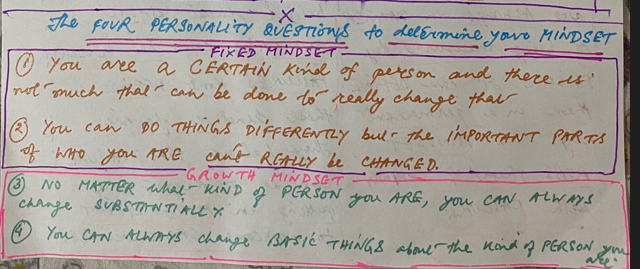 X
The FOUR PERSONALITY QUESTIONS to determine your MINDSET
FIXED MINDSET
① You are a CERTAIN Kind of person and there is
not much that can be done to really change that
② You can DO THINGS DIFFERENTLY but the IMPORTANT PARTS
of WHO you ARE can't REALLY be CHANGED.
GROWTH MINDSET
③ NO MATTER what KIND of PERSON you ARE, you CAN ALWAYS
change SUBSTANTIALLY.
④ YOU CAN ALWAYS change BASIC THINGS about the kind of PERSON you
are.